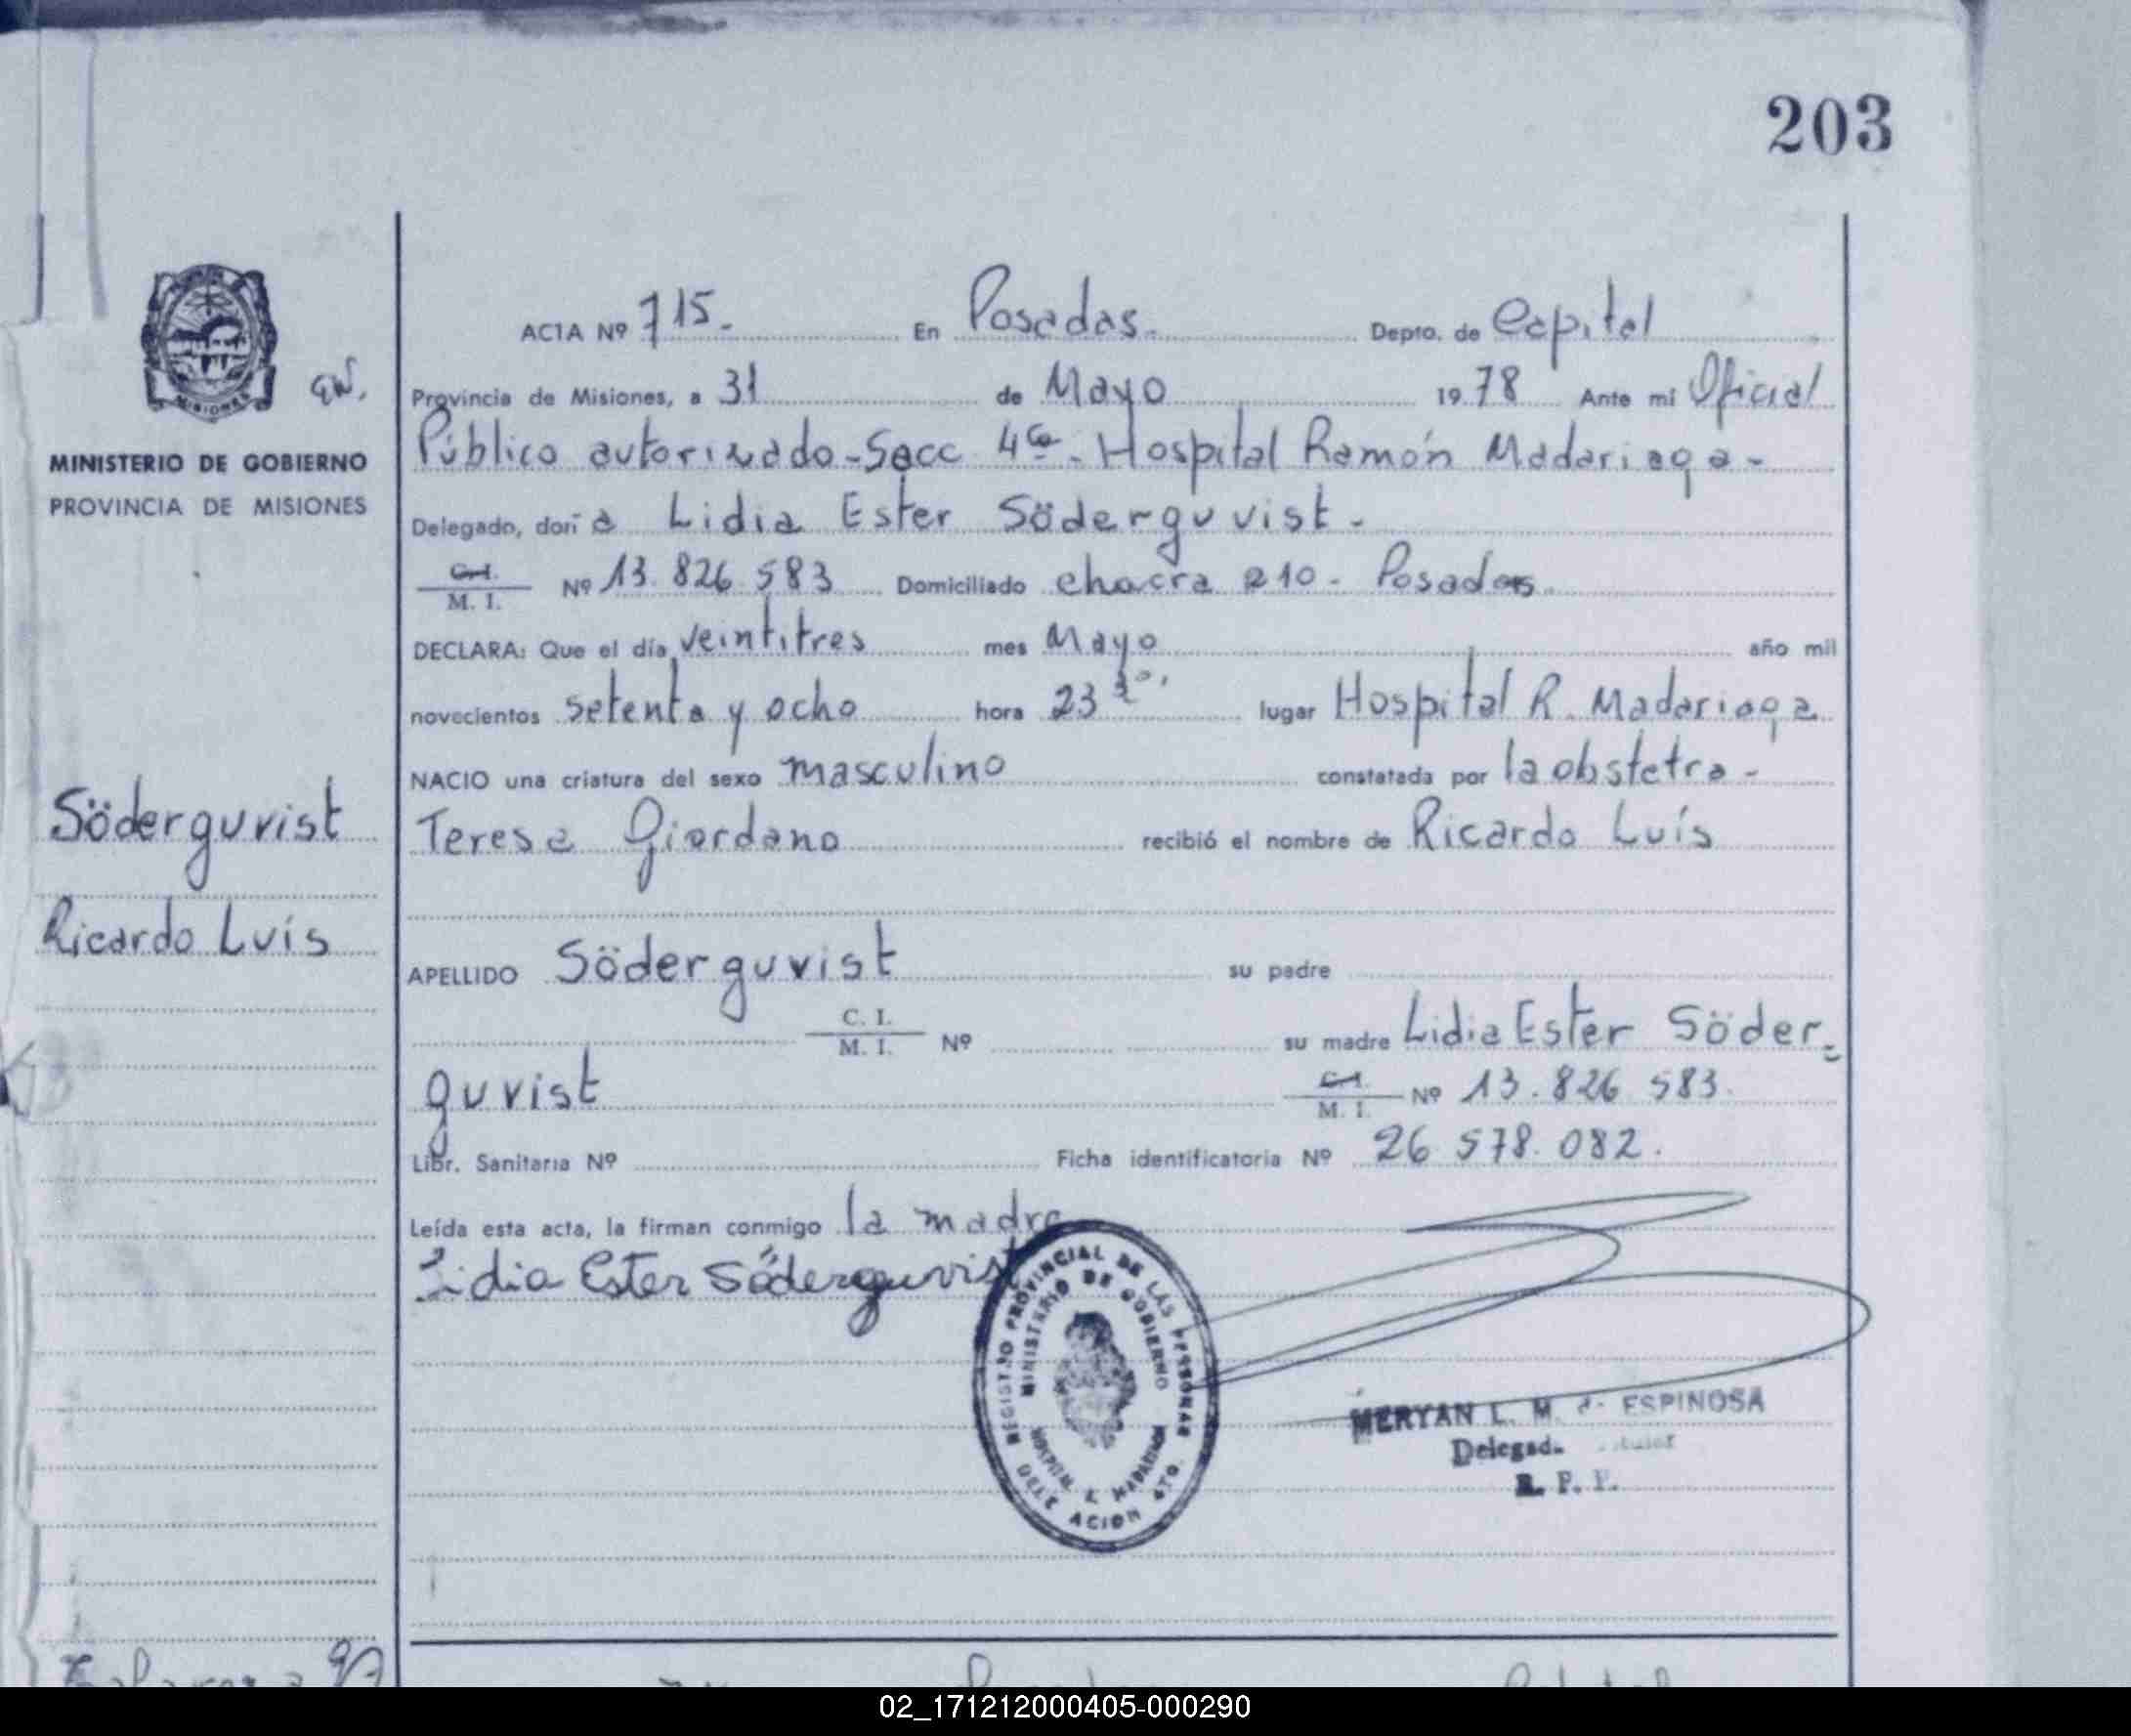 203
ACTA Nº 715. En Posadas. Depto. de Capital
MISIONES
Provincia de Misiones, a 31 de Mayo 1978 Ante mi Oficial
MINISTERIO DE GOBIERNO
PROVINCIA DE MISIONES
Público autorizado - Secc 4ta - Hospital Ramón Madariaga -
Delegado, don a Lidia Ester Söderguvist -
C.I. M. I. Nº 13.826.583 Domiciliado chacra 210 - Posadas.
DECLARA: Que el día veintitres mes Mayo año mil
novecientos setenta y ocho hora 23 30' lugar Hospital R. Madariaga
NACIO una criatura del sexo masculino constatada por la obstetra -
Söderguvist
Teresa Giordano recibió el nombre de Ricardo Luís
Ricardo Luís
APELLIDO Söderguvist su padre
C. I. M. I. Nº su madre Lidia Ester Söder=
guvist C.I. M. I. Nº 13.826.583.
Libr. Sanitaria Nº Ficha identificatoria Nº 26.578.082.
Leída esta acta, la firman conmigo la madre
Lidia Ester Söderguvist
REGISTRO PROVINCIAL DE LAS PERSONAS
MINISTERIO DE GOBIERNO
HOSPITAL R. MADARIAGA
DELEGACION 4TO.
MERYAN L. M. de ESPINOSA
Delegada Titular
R. P. P.
02_171212000405-000290